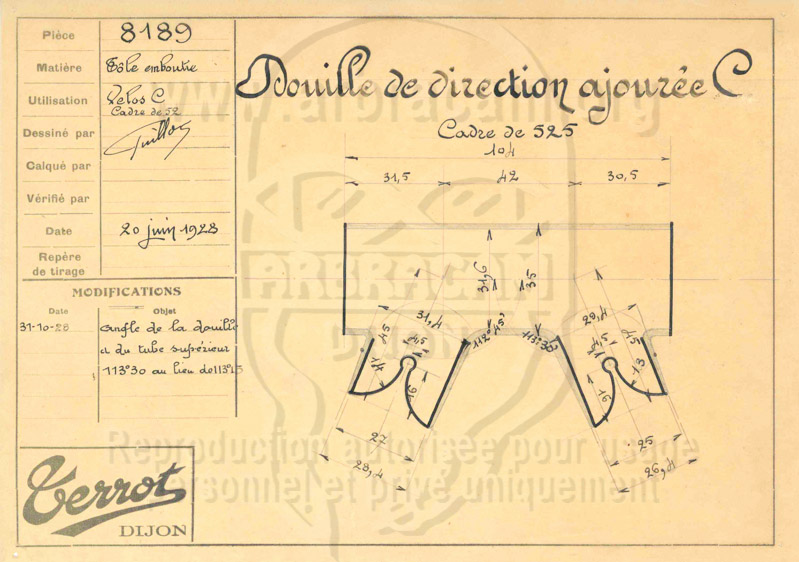 Pièce 8189
Matière Tôle emboutie
Utilisation Vélos C
Cadre de 52
Dessiné par Guillon
Calqué par
Vérifié par
Date 20 juin 1928
Repère
de tirage
MODIFICATIONS
Date Objet
31-10-28 angle de la douille
et du tube supérieur
113°30 au lieu de 113°45
Terrot
DIJON
Douille de direction ajourée C
Cadre de 525
104
31,5 42 30,5
31,6 35
31,4 29,4
45 45
112°45' 113°30
4,5 4,5
14 16 16 13
27 25
29,4 26,4
www.arbracam.org
ARBRACAM
DIJON
Reproduction autorisée pour usage
personnel et privé uniquement